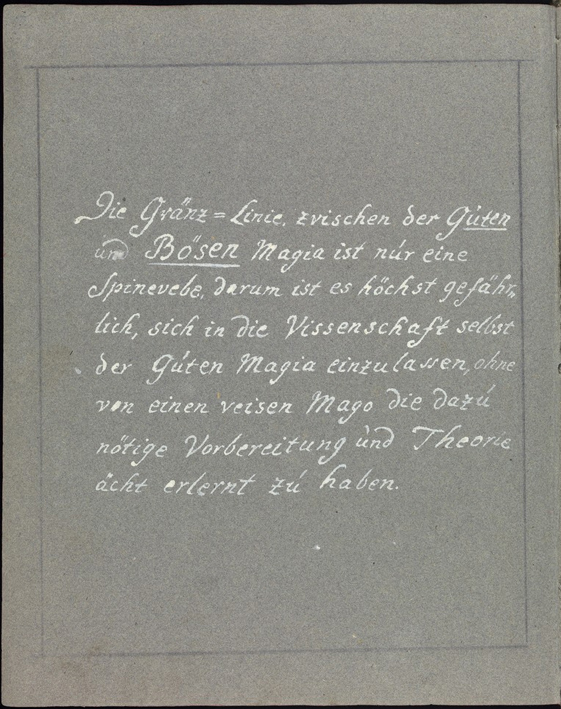 Die Gränz = Linie, zvischen der Gúten
und Bösen Magia ist núr eine
Spinevebe, darum ist es höchst gefähr„
lich, sich in die Vissenschaft selbst
der Gúten Magia einzulassen, ohne
von einen veisen Mago die dazú
nötige Vorbereitung únd Theorie
ächt erlernt zú haben.